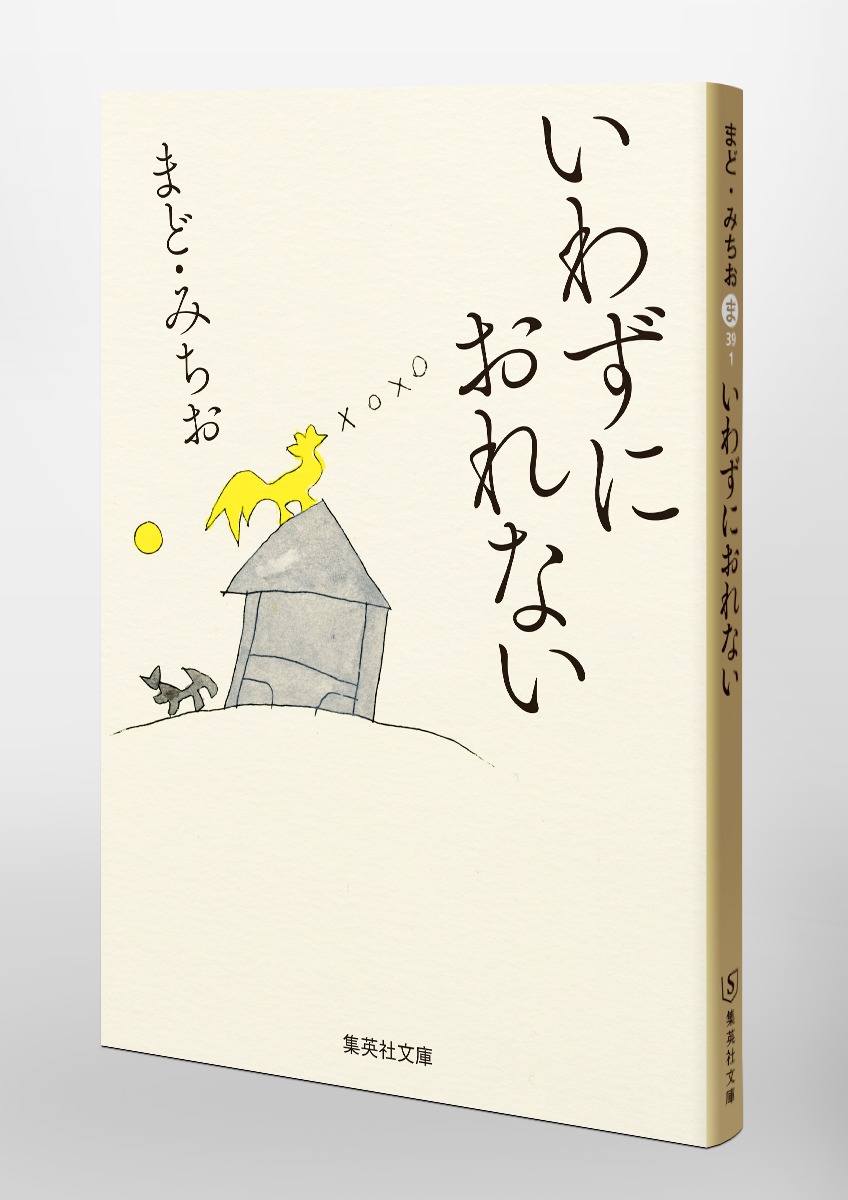 いわずに
おれない
まど・みちお
XOXO
集英社文庫
まど・みちお
ま
39
1
いわずにおれない
S
集英社文庫